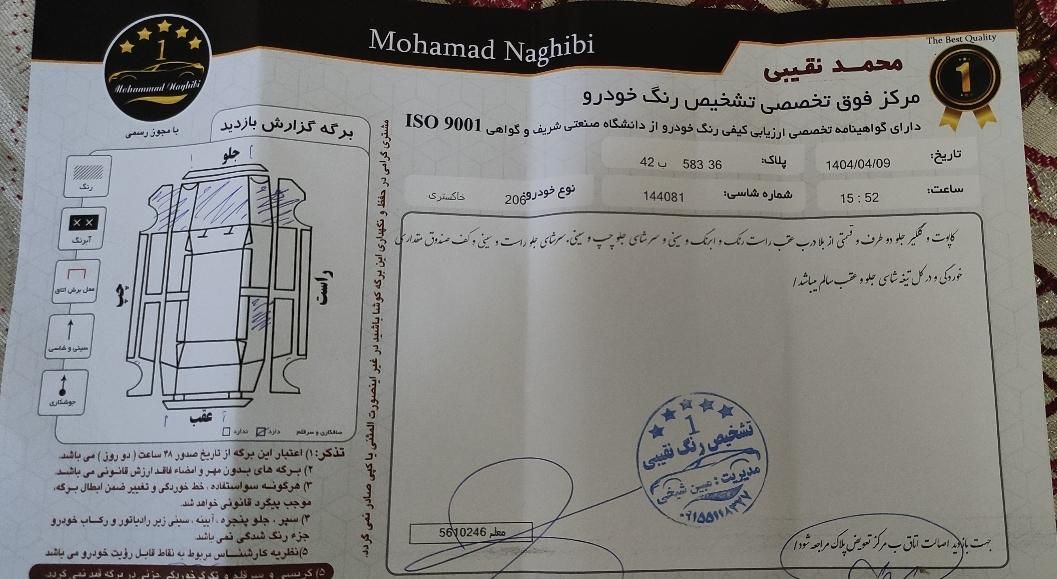 Mohamad Naghibi
The Best Quality
1
1
Mohammad Naghibi
با مجوز رسمی
محمـد نقیبی
مرکز فوق تخصصی تشخیص رنگ خودرو
دارای گواهینامه تخصصی ارزیابی کیفی رنگ خودرو از دانشگاه صنعتی شریف و گواهی ISO 9001
تاریخ: 1404/04/09
پلاک: 36 583 ب 42
ساعت: 15 : 52
شماره شاسی: 144081
نوع خودرو 206 خاکستری
برگه گزارش بازدید
جلو
رنگ
آبرنگ
محل برش اتاق
سینی و شاسی
جوشکاری
چپ
راست
عقب
صافکاری و سرقلم دارد ندارد
مشتری گرامی در حفظ و نگهداری این برگه کوشا باشید در غیر اینصورت المثنی یا کپی صادر نمی گردد.
کاپوت و گلگیر جلو دو طرف و قسمتی از بلا درب عقب راست رنگ و ابرنگ و سینی و سرشاسی جلو چپ و سینی، سرشاسی جلو راست و سینی و کف صندوق مقداری
خوردگی و در کل تیغه شاسی جلو و عقب سالم میباشد/
تذکر: ۱) اعتبار این برگه از تاریخ صدور ۴۸ ساعت ( دو روز ) می باشد.
۲) برگه های بدون مهر و امضاء فاقد ارزش قانونی می باشد.
۳) هرگونه سواستفاده ، خط خوردگی و تغییر ضمن ابطال برگه،
موجب پیگرد قانونی خواهد شد.
۴) سپر ، جلو پنجره ، آیینه ، سینی زیر رادیاتور و رکاب خودرو
جزء رنگ شدگی نمی باشد.
۵) نظریه کارشناس مربوط به نقاط قابل رؤیت خودرو می باشد
معلم 5610246
1
تشخیص رنگ نقیبی
مدیریت : مبین شیخی
جهت بازدید اصالت اتاق ب مرکز تعویض پلاک مراجعه شود/